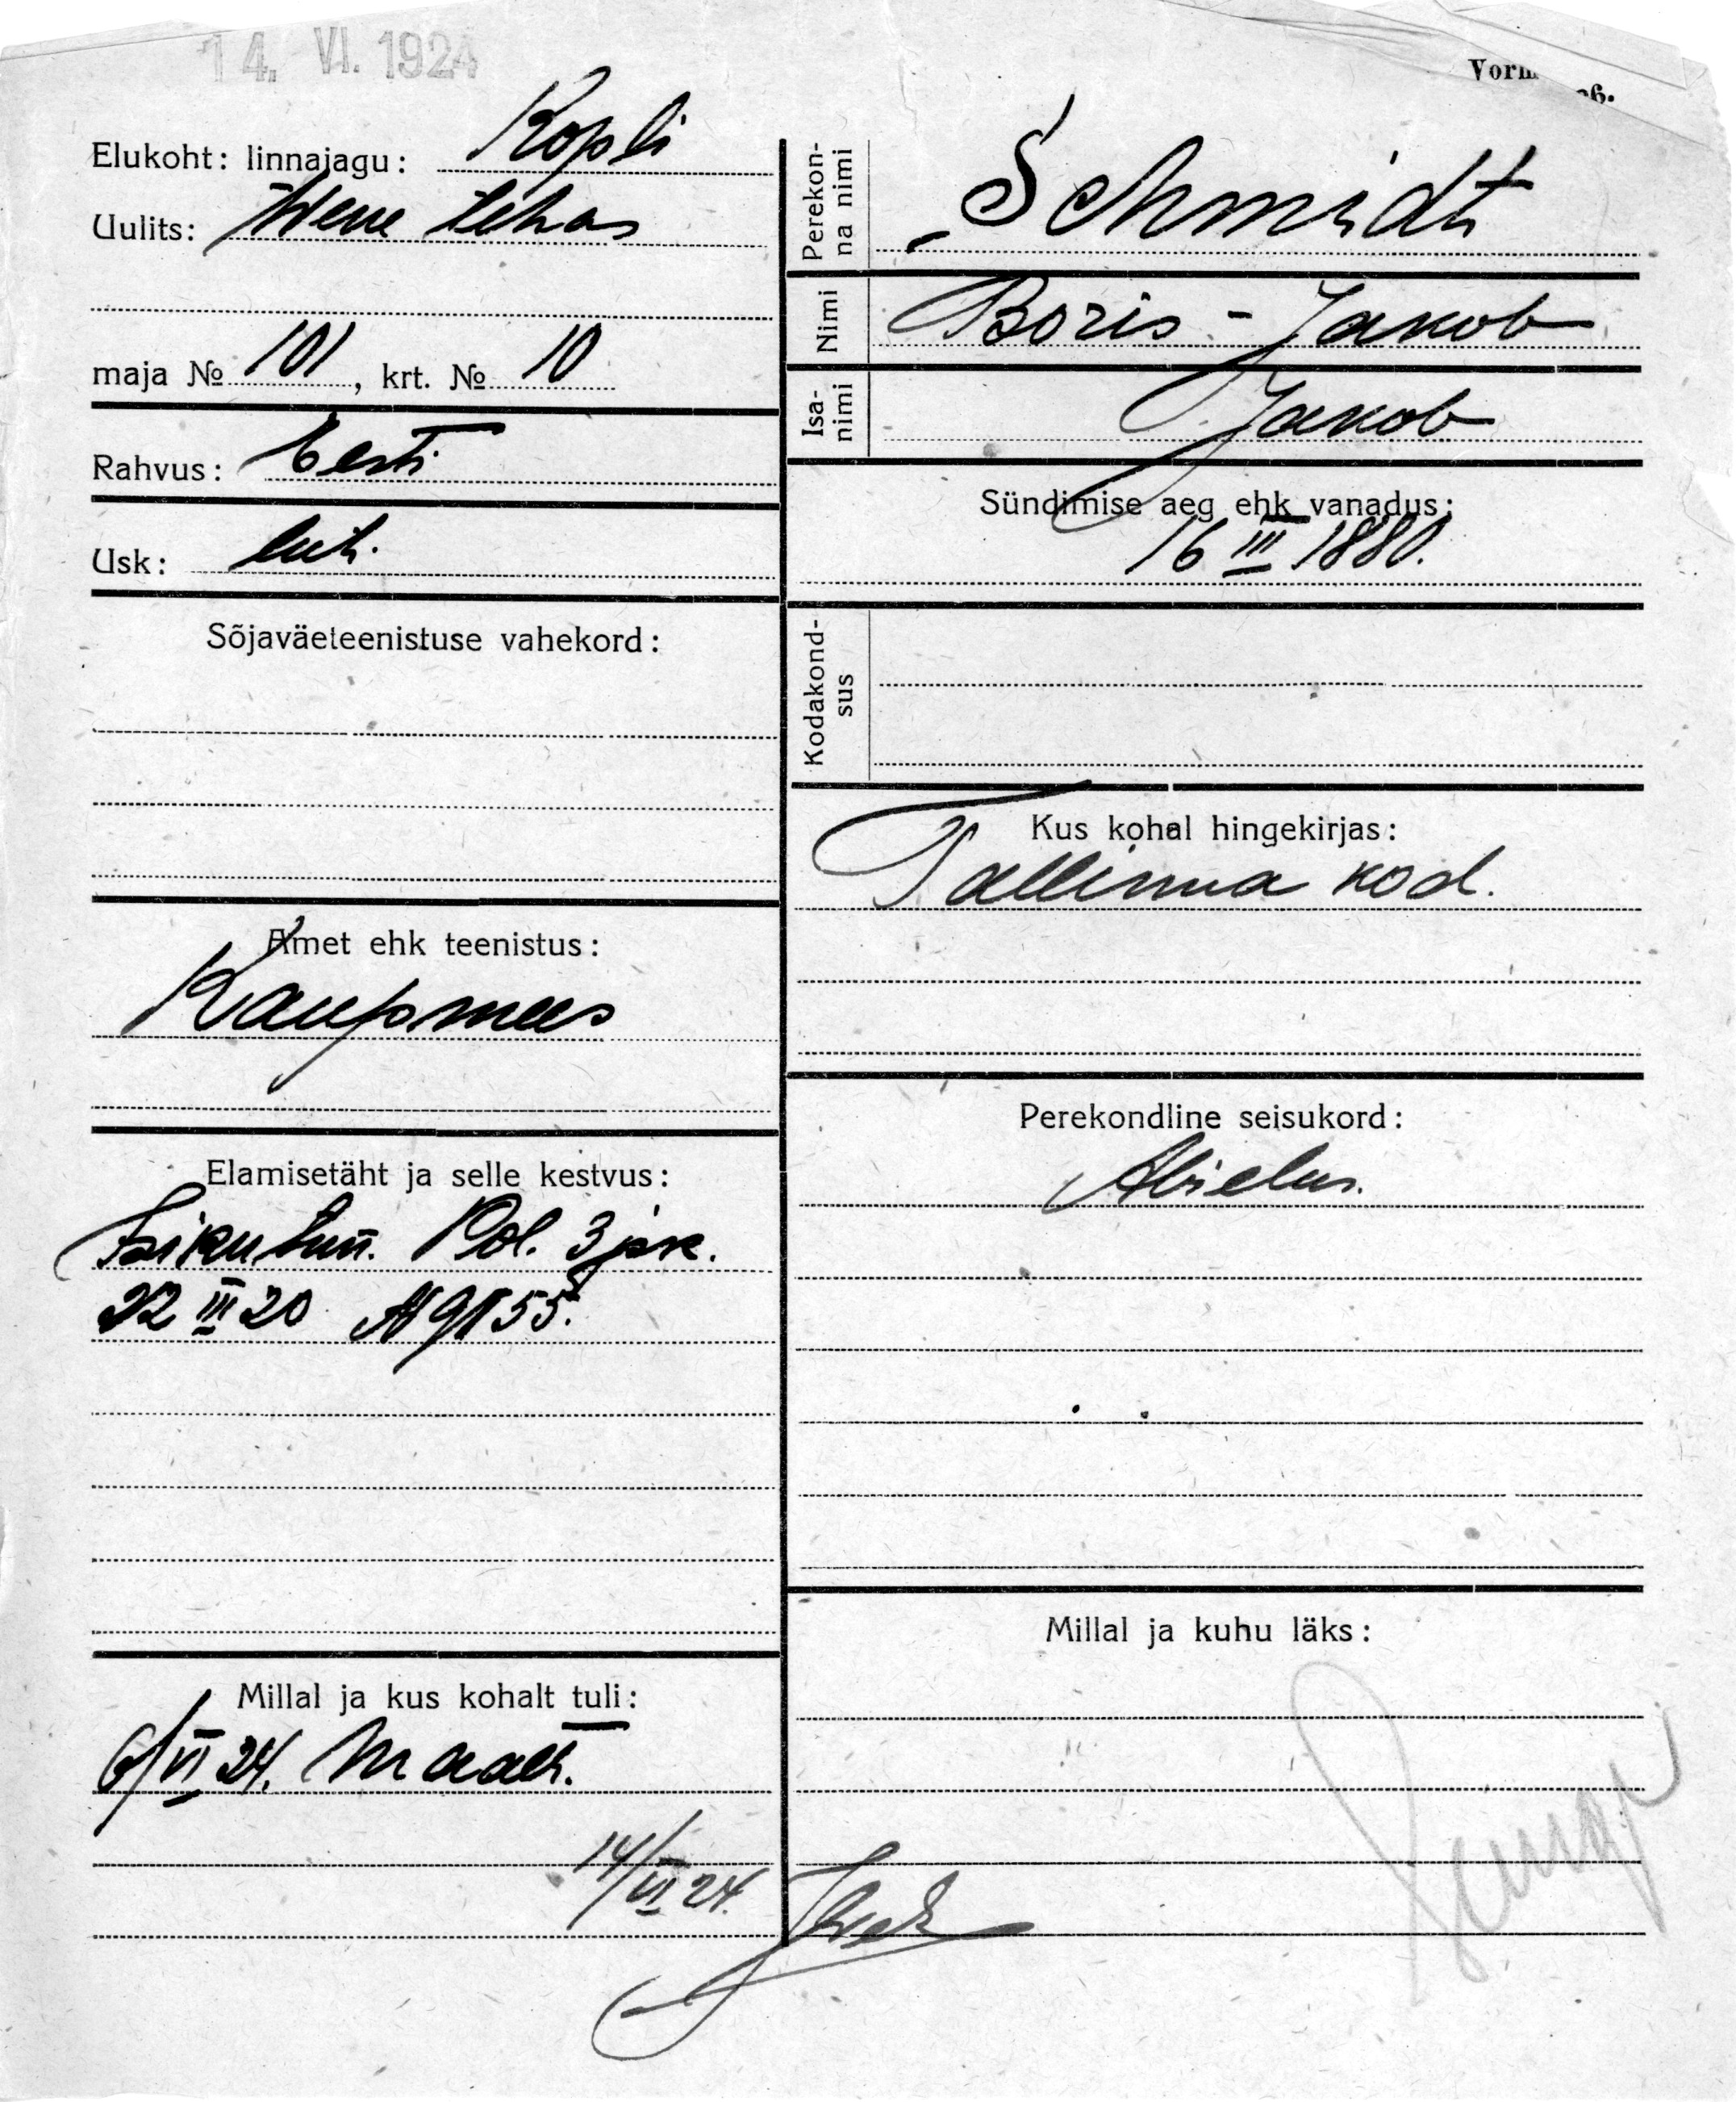 14. VI. 1924
Elukoht: linnajagu: Kopli
Uulits: Wene tehas
maja № 101, krt. № 10
Rahvus: Eesti
Usk: luth.
Sõjaväeteenistuse vahekord:
Amet ehk teenistus:
Kaupmees
Elamisetäht ja selle kestvus:
Isikutun. Pol. 3 jsk.
22 III 20
Millal ja kus kohalt tuli:
6/VI 24. Maalt.
14/VI 24.
Perekonna nimi
Schmidt
Nimi
Boris-Jakob
Isanimi
Jakob
Sündimise aeg ehk vanadus:
16 III 1880.
Kodakondsus
Kus kohal hingekirjas:
Tallinna kod.
Perekondline seisukord:
Abielus.
Millal ja kuhu läks: